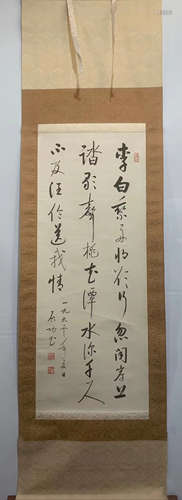 李白乘舟将欲行忽闻岸上
踏歌聲桃花潭水深千尺
不及汪伦送我情
一九